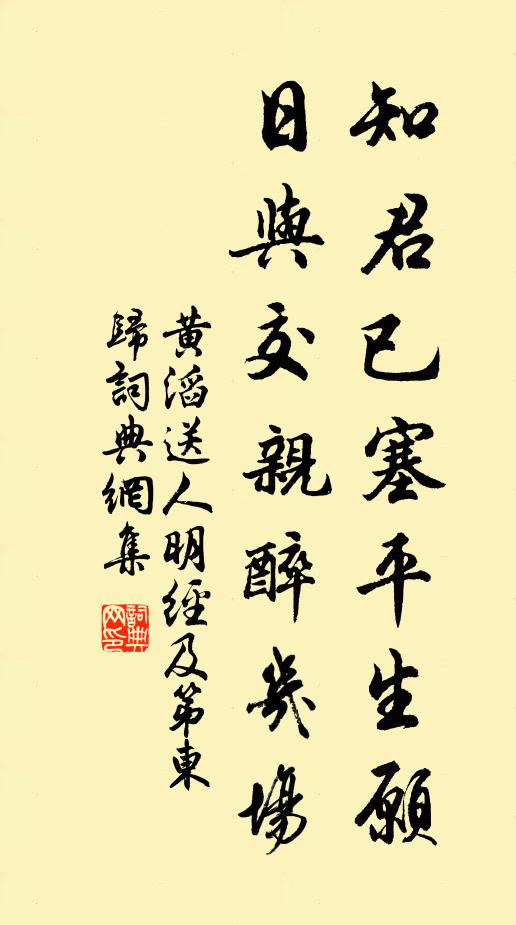 知君已塞平生願
日與交親醉幾場
黄滔送人明經及第東
歸詞典網集
詞典
网印